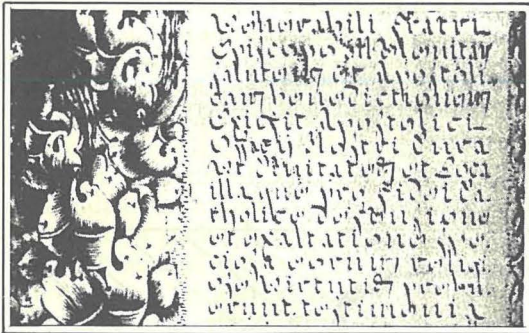 Venerabili Fratri
Episcopo Melevitan
salutem et Apostoli
cam benedictionem
Exigit Apostolici
Officij Nostri cura
ut Civitates et Loca
illa que pro Fidei Ca
tholice defensione
et exaltatione spe
ciosa eorum religi
ose virtutis prebu
erunt testimonia